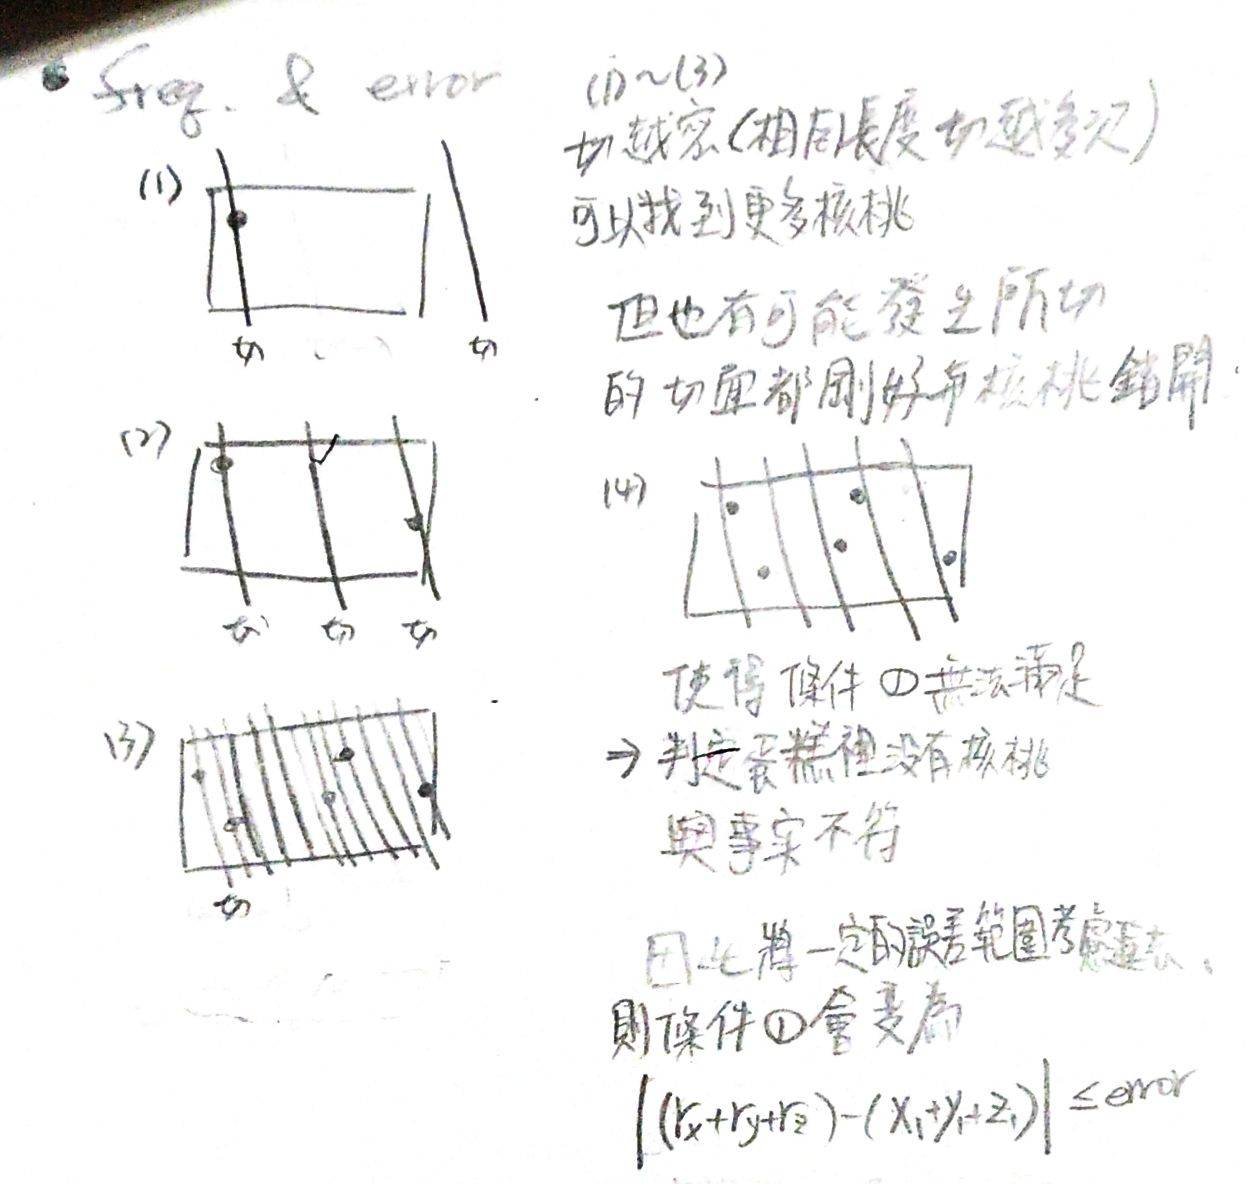 freq. & error
(1)
切
切
(2)
切
切
切
(3)
切
(1)~(3)
切越密(相同長度切越多次)
可以找到更多核桃
但也有可能發生所切
的切面都剛好與核桃錯開
(4)
使得條件①無法滿足
→判定蛋糕裡沒有核桃
與事實不符
因此將一定的誤差範圍考慮進去、
則條件①會變為
|(rx+ry+rz)-(x₁+y₁+z₁)| ≤ error